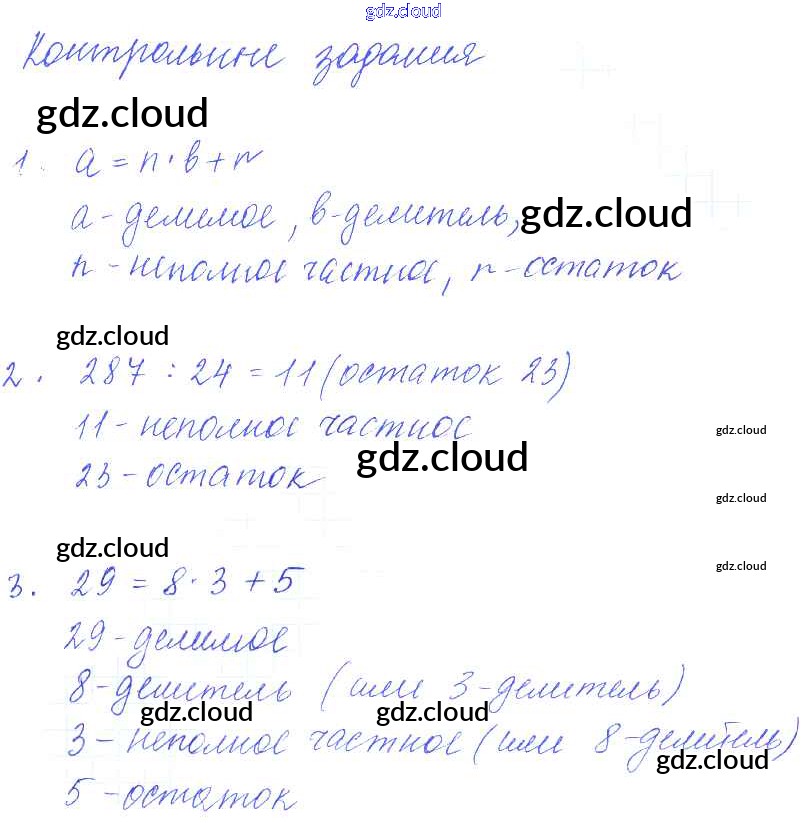 gdz.cloud
Контрольные задания
gdz.cloud
1. a = n · b + r
a - делимое, b - делитель, gdz.cloud
n - неполное частное, r - остаток
gdz.cloud
2. 287 : 24 = 11 (остаток 23)
11 - неполное частное gdz.cloud
23 - остаток gdz.cloud
gdz.cloud
gdz.cloud gdz.cloud
3. 29 = 8 · 3 + 5
29 - делимое
8 - делитель (или 3 - делитель)
gdz.cloud gdz.cloud
3 - неполное частное (или 8 - делитель)
gdz.cloud
5 - остаток